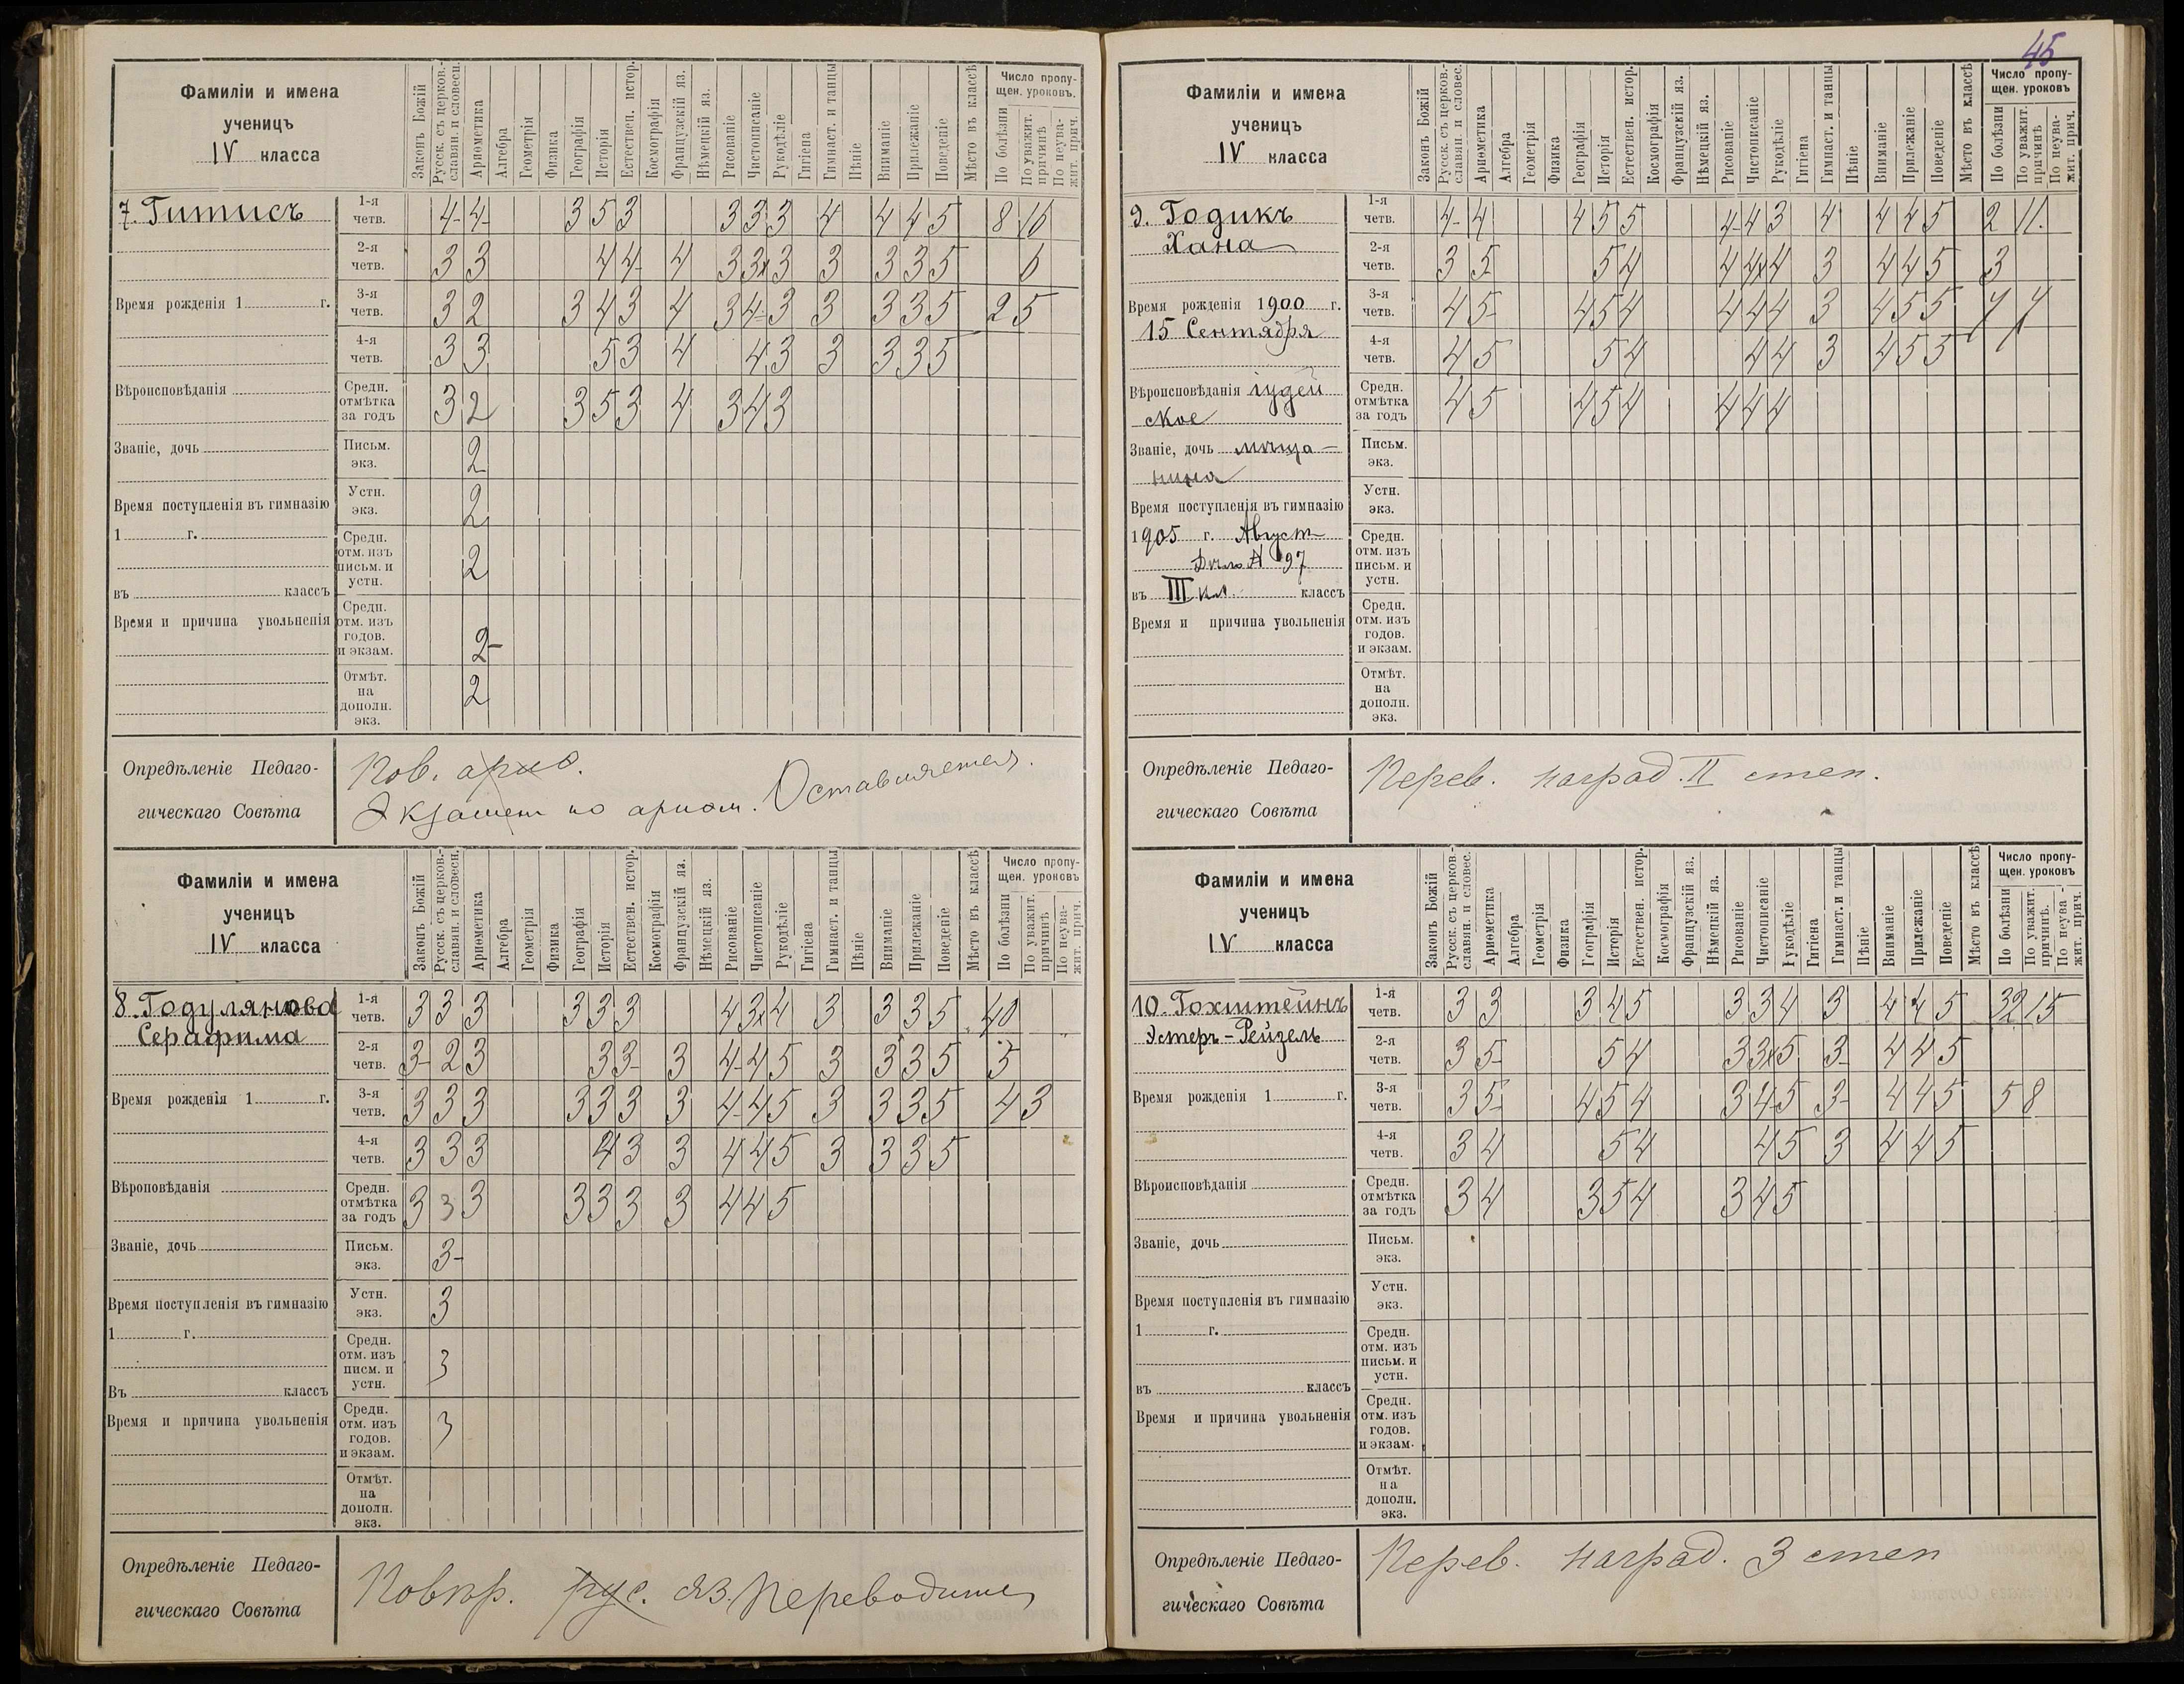 Фамиліи и имена
ученицъ
IV класса
Законъ Божій
Русск. съ церков.-
славян. и словесн.
Ариѳметика
Алгебра
Геометрія
Физика
Географія
Исторія
Естествен. истор.
Космографія
Французскій яз.
Нѣмецкій яз.
Рисованіе
Чистописаніе
Рукодѣліе
Гигіена
Гимнаст. и танцы
Пѣніе
Вниманіе
Прилежаніе
Поведеніе
Мѣсто въ классѣ
Число пропу-
щен. уроковъ.
По болѣзни
По уважит.
причинѣ
По неува-
жит. прич.
7. Гитисъ
1-я четв. 4- 4- 3 5 3 3 3 3 4 4 4 5 8 16
2-я четв. 3 3 4 4- 4 3 3 3 3 3 3 5 6
Время рожденія 1 г.
3-я четв. 3 2 3 4 3 4 3 4- 3 3 3 3 5 2 5
4-я четв. 3 3 5 3 4 4 3 3 3 3 5
Вѣроисповѣданія
Средн. отмѣтка за годъ 3 2 3 5 3 4 3 4 3
Званіе, дочь
Письм. экз. 2
Время поступленія въ гимназію
Устн. экз. 2
1 г.
Средн. отм. изъ письм. и устн. 2
въ классъ
Время и причина увольненія
Средн. отм. изъ годов. и экзам. 2-
Отмѣт. на дополн. экз. 2
Опредѣленіе Педаго-
гическаго Совѣта
Пов. ариѳ.
Экзамен по ариѳм. Оставляется.
Фамиліи и имена
ученицъ
IV класса
Законъ Божій
Русск. съ церков.-
славян. и словесн.
Ариѳметика
Алгебра
Геометрія
Физика
Географія
Исторія
Естествен. истор.
Космографія
Французскій яз.
Нѣмецкій яз.
Рисованіе
Чистописаніе
Рукодѣліе
Гигіена
Гимнаст. и танцы
Пѣніе
Вниманіе
Прилежаніе
Поведеніе
Мѣсто въ классѣ
Число пропу-
щен. уроковъ
По болѣзни
По уважит.
причинѣ
По неува-
жит. прич.
8. Годулянова
Серафима
1-я четв. 3 3 3 3 3 3 4 3 4 3 3 3 5 40
2-я четв. 3- 2 3 3 3- 3 4- 4 5 3 3 3 5 5
Время рожденія 1 г.
3-я четв. 3 3 3 3 3 3 3 4- 4 5 3 3 3 5 4 3
4-я четв. 3 3 3 4 3 3 4 4 5 3 3 3 5
Вѣроповѣданія
Средн. отмѣтка за годъ 3 3 3 3 3 3 3 4 4 5
Званіе, дочь
Письм. экз. 3-
Время поступленія въ гимназію
Устн. экз. 3
1 г.
Средн. отм. изъ писм. и устн. 3
Въ классъ
Время и причина увольненія
Средн. отм. изъ годов. и экзам. 3
Отмѣт. на дополн. экз.
Опредѣленіе Педаго-
гическаго Совѣта
Повѣр. рус. яз. Переводится
45
Фамиліи и имена
ученицъ
IV класса
Законъ Божій
Русск. съ церков.-
славян. и словес.
Ариѳметика
Алгебра
Геометрія
Физика
Географія
Исторія
Естествен. истор.
Космографія
Французскій яз.
Нѣмецкій яз.
Рисованіе
Чистописаніе
Рукодѣліе
Гигіена
Гимнаст. и танцы
Пѣніе
Вниманіе
Прилежаніе
Поведеніе
Мѣсто въ классѣ
Число пропу-
щен. уроковъ
По болѣзни
По уважит.
причинѣ
По неува-
жит. прич.
9. Годикъ
Хана
1-я четв. 4- 4 4 5 5 4- 4 3 4 4 4 5 2 11.
2-я четв. 3 5 5 4 4 4 4 3 4 4 5 3
Время рожденія 1900 г.
15 Сентября
3-я четв. 4 5 4 5 4 4 4 4 3 4 5 5 7 7
4-я четв. 4 5 5 4 4 4 3 4 5 5
Вѣроисповѣданія іудей
ское
Средн. отмѣтка за годъ 4 5 4 5 4 4 4 4
Званіе, дочь мѣща-
нина
Письм. экз.
Время поступленія въ гимназію
Устн. экз.
1905 г. Август
Дѣло № 97
Средн. отм. изъ письм. и устн.
въ III кл. классъ
Время и причина увольненія
Средн. отм. изъ годов. и экзам.
Отмѣт. на дополн. экз.
Опредѣленіе Педаго-
гическаго Совѣта
Перев. наград. II степ.
Фамиліи и имена
ученицъ
IV класса
Законъ Божій
Русск. съ церков.-
славян. и словес.
Ариѳметика
Алгебра
Геометрія
Физика
Географія
Исторія
Естествен. истор.
Космографія
Французскій яз.
Нѣмецкій яз.
Рисованіе
Чистописаніе
Рукодѣліе
Гигіена
Гимнаст. и танцы
Пѣніе
Вниманіе
Прилежаніе
Поведеніе
Мѣсто въ классѣ
Число пропу-
щен. уроковъ
По болѣзни
По уважит.
причинѣ.
По неува-
жит. прич.
10. Гохштейнъ
Эстеръ-Рейзель
1-я четв. 3 3 3 4 5 3 3 4 3 4 4 5 32 15
2-я четв. 3 5- 5 4 3 3 5 3- 4 4 5
Время рожденія 1 г.
3-я четв. 3 5- 4 5 4 3 4 5 3- 4 4 5 5 8
4-я четв. 3 4 5 4 4 5 3 4 4 5
Вѣроисповѣданія
Средн. отмѣтка за годъ 3 4 3 5 4 3 4 5
Званіе, дочь
Письм. экз.
Время поступленія въ гимназію
Устн. экз.
1 г.
Средн. отм. изъ письм. и устн.
въ классъ
Время и причина увольненія
Средн. отм. изъ годов. и экзам.
Отмѣт. на дополн. экз.
Опредѣленіе Педаго-
гическаго Совѣта
Перев. наград. 3 степ